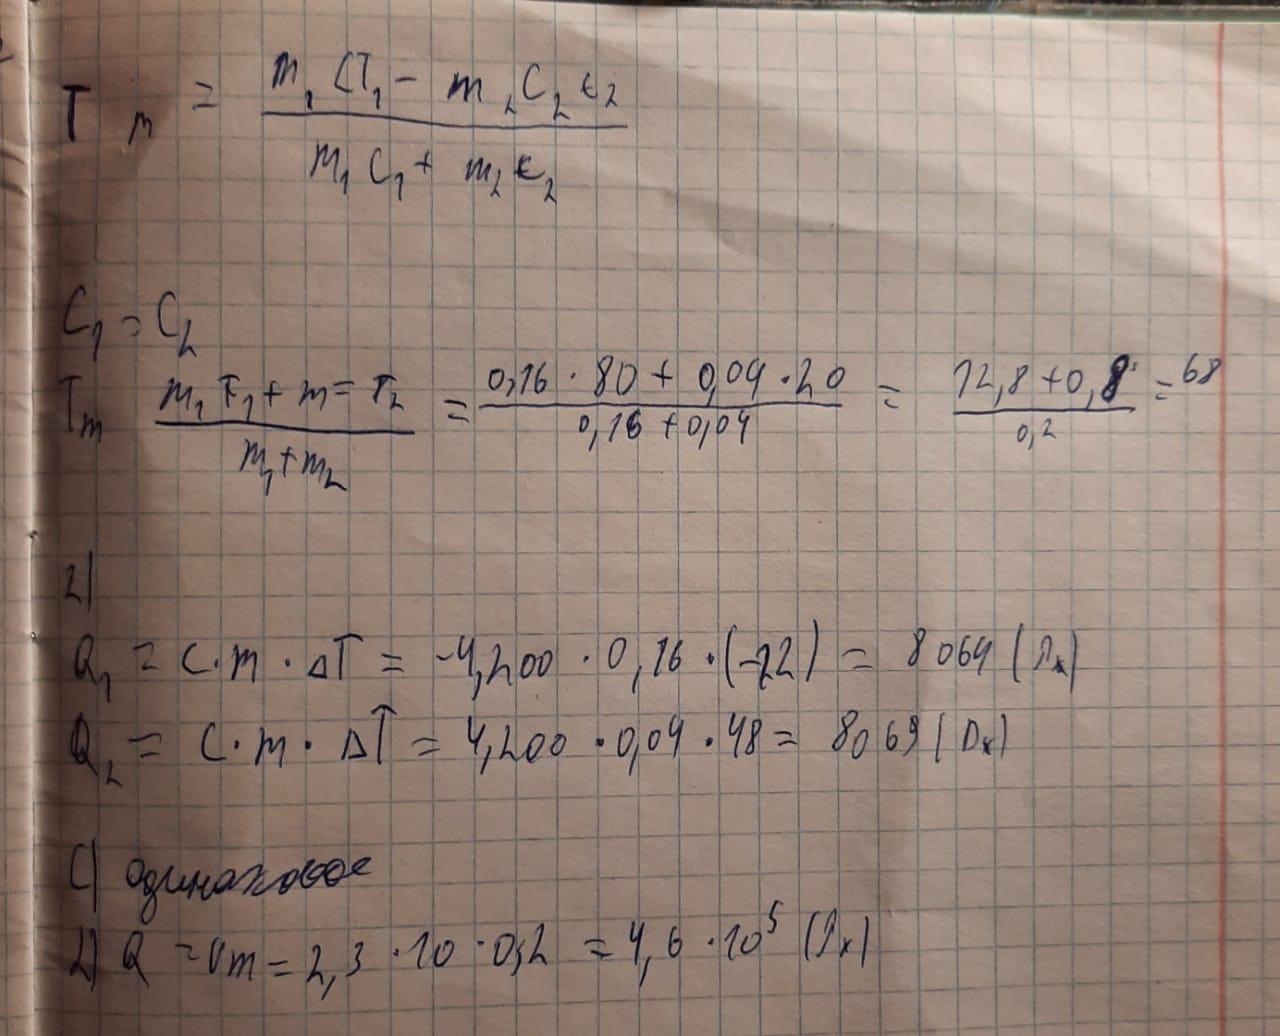 Tm = (m₁CT₁ - m₂C₂t₂) / (m₁C₁ + m₂t₂)
C₁ = C₂
Tm (m₁T₁ + m = T₂) / (m₁ + m₂) = (0,16 · 80 + 0,04 · 20) / (0,16 + 0,04) = (12,8 + 0,8) / 0,2 = 68
2)
Q₁ = C · m · ΔT = -4,200 · 0,16 · (-12) = 8064 (Дж)
Q₂ = C · m · ΔT = 4,200 · 0,04 · 48 = 8069 (Дж)
C) одинаковое
2) Q = υm = 2,3 · 10 · 0,2 = 4,6 · 10⁵ (Дж)